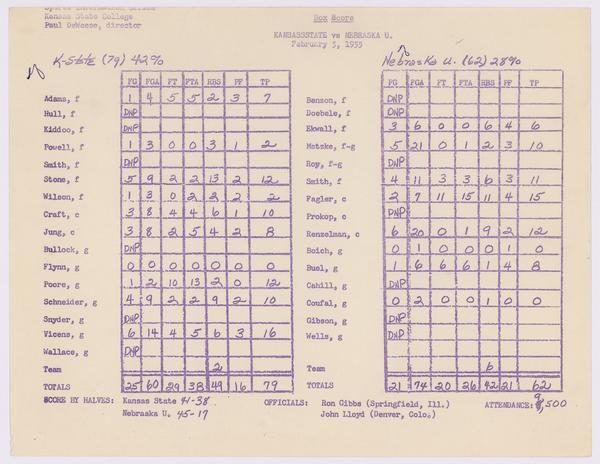 Sports Information Office
Kansas State College
Paul DeWeese, director
Box Score
KANSASSTATE vs NEBRASKA U.
February 5, 1955
K-State (79) 42%
FG FGA FT FTA RBS PF TP
Adams, f 1 4 5 5 2 3 7
Hull, f DNP
Kiddoo, f DNP
Powell, f 1 3 0 0 3 1 2
Smith, f DNP
Stone, f 5 9 2 2 13 2 12
Wilson, f 1 3 0 2 2 2 2
Craft, c 3 8 4 4 6 1 10
Jung, c 3 8 2 5 4 2 8
Bullock, g DNP
Flynn, g 0 0 0 0 0 0 0
Poore, g 1 2 10 13 2 0 12
Schneider, g 4 9 2 2 9 2 10
Snyder, g DNP
Vicens, g 6 14 4 5 6 3 16
Wallace, g DNP
Team 2
TOTALS 25 60 29 38 49 16 79
Nebraska U. (62) 28%
FG FGA FT FTA RBS PF TP
Benson, f DNP
Doebele, f DNP
Ekwall, f 3 6 0 0 6 4 6
Matzke, f-g 5 21 0 1 2 3 10
Roy, f-g DNP
Smith, f 4 11 3 3 6 3 11
Fagler, c 2 7 11 15 11 4 15
Prokop, c DNP
Renzelman, c 6 20 0 1 9 2 12
Boich, g 0 1 0 0 0 1 0
Buel, g 1 6 6 6 1 4 8
Cahill, g DNP
Coufal, g 0 2 0 0 1 0 0
Gibson, g DNP
Wells, g DNP
Team 6
TOTALS 21 74 20 26 42 21 62
SCORE BY HALVES: Kansas State 41-38
Nebraska U. 45-17
OFFICIALS: Ron Gibbs (Springfield, Ill.)
John Lloyd (Denver, Colo.)
ATTENDANCE: 9,500